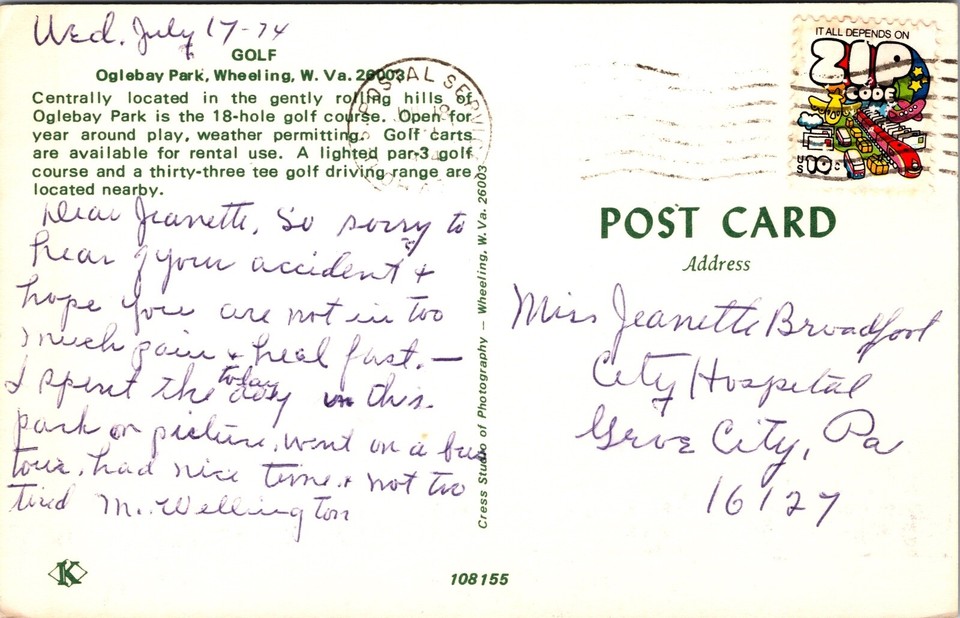 Wed. July 17-74
GOLF
Oglebay Park, Wheeling, W. Va. 26003
Centrally located in the gently rolling hills of
Oglebay Park is the 18-hole golf course. Open for
year around play, weather permitting. Golf carts
are available for rental use. A lighted par-3 golf
course and a thirty-three tee golf driving range are
located nearby.
Dear Jeanette, So sorry to
hear of your accident &
hope you are not in too
much pain & heal fast. —
I spent the day today in this
park on picture, went on a bus
tour, had nice time & not too
tired M. Wellington
K
108155
Cress Studio of Photography — Wheeling, W. Va. 26003
POSTAL SERVI
IT ALL DEPENDS ON
ZIP
CODE
US 10c
POST CARD
Address
Miss Jeanette Broadfoot
City Hospital
Grove City, Pa
16127